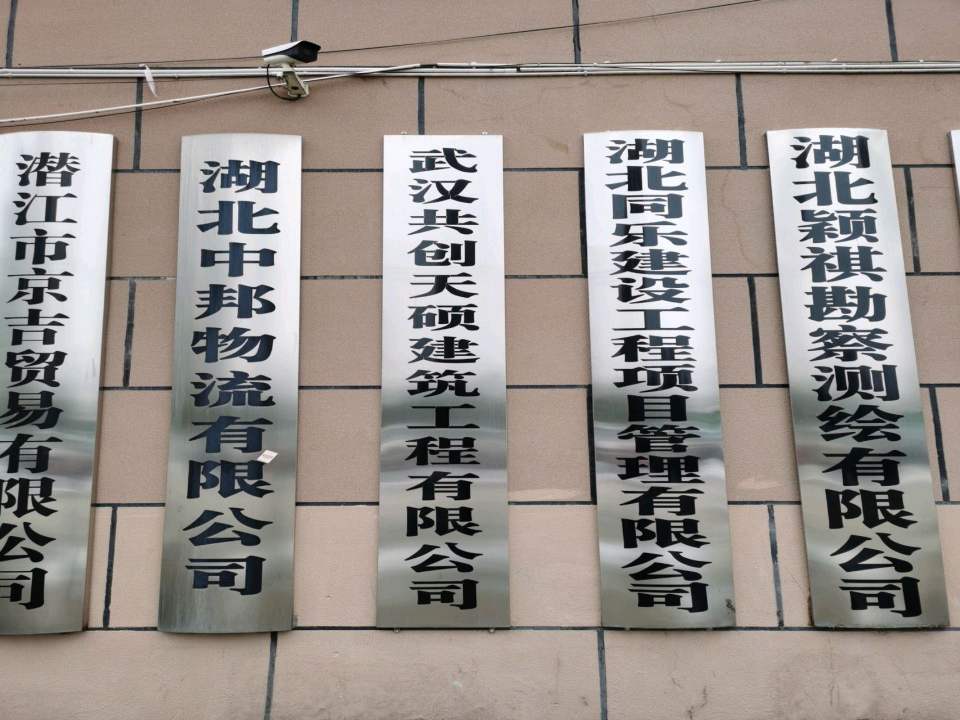 潜江市京吉贸易有限公司
湖北中邦物流有限公司
武汉共创天硕建筑工程有限公司
湖北同乐建设工程项目管理有限公司
湖北颖祺勘察测绘有限公司